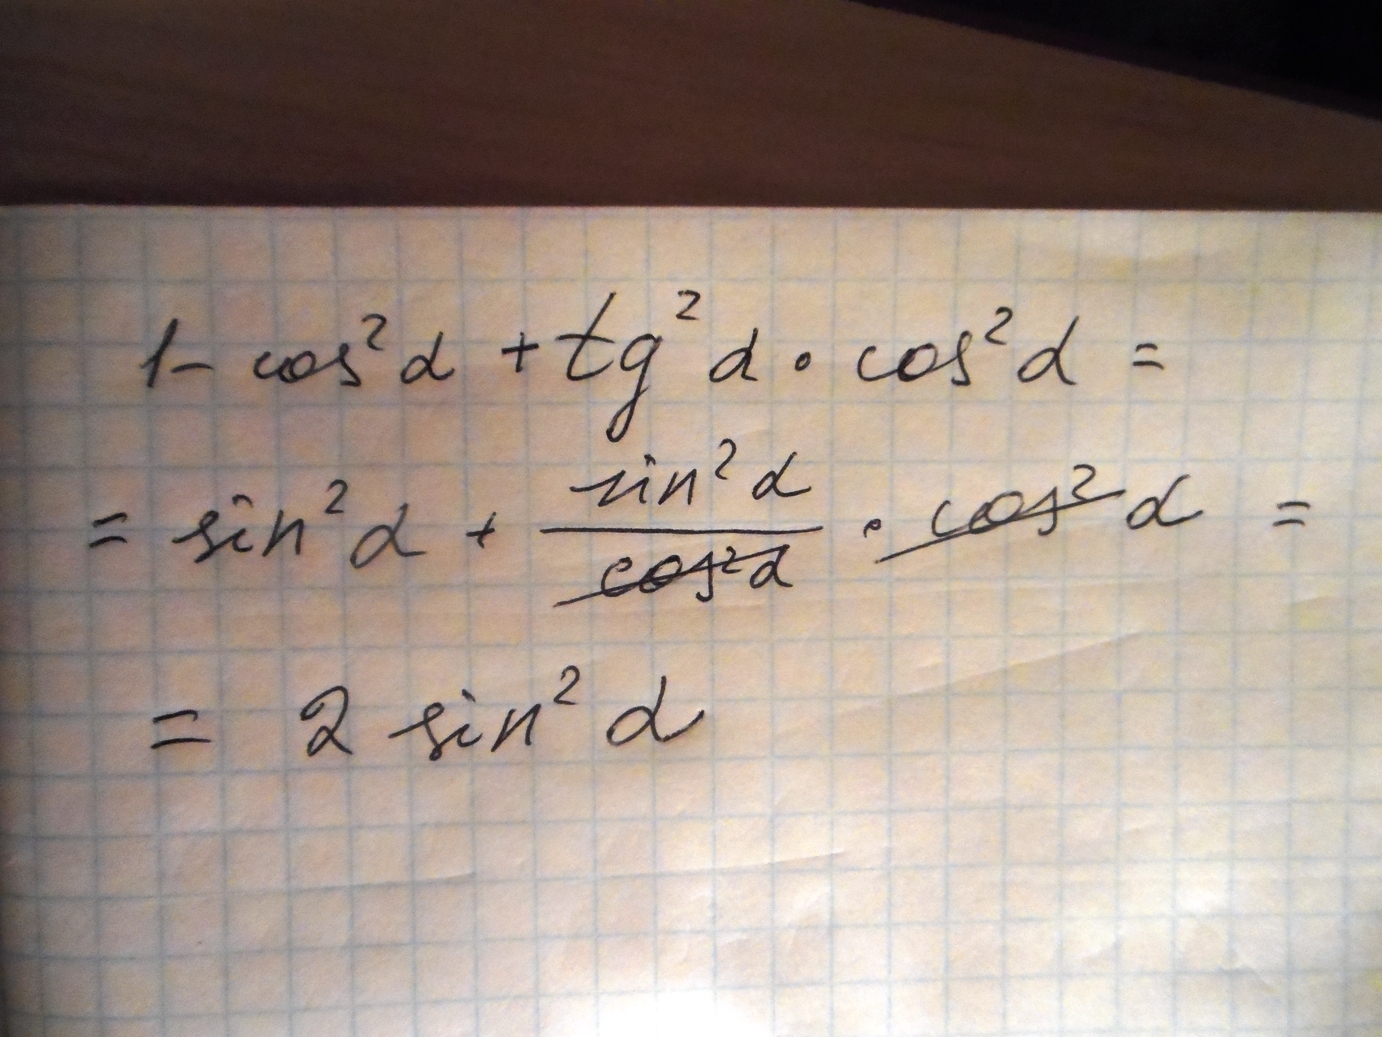 1 - cos² α + tg² α · cos² α =
= sin² α + sin² α / cos² α · cos² α =
= 2 sin² α